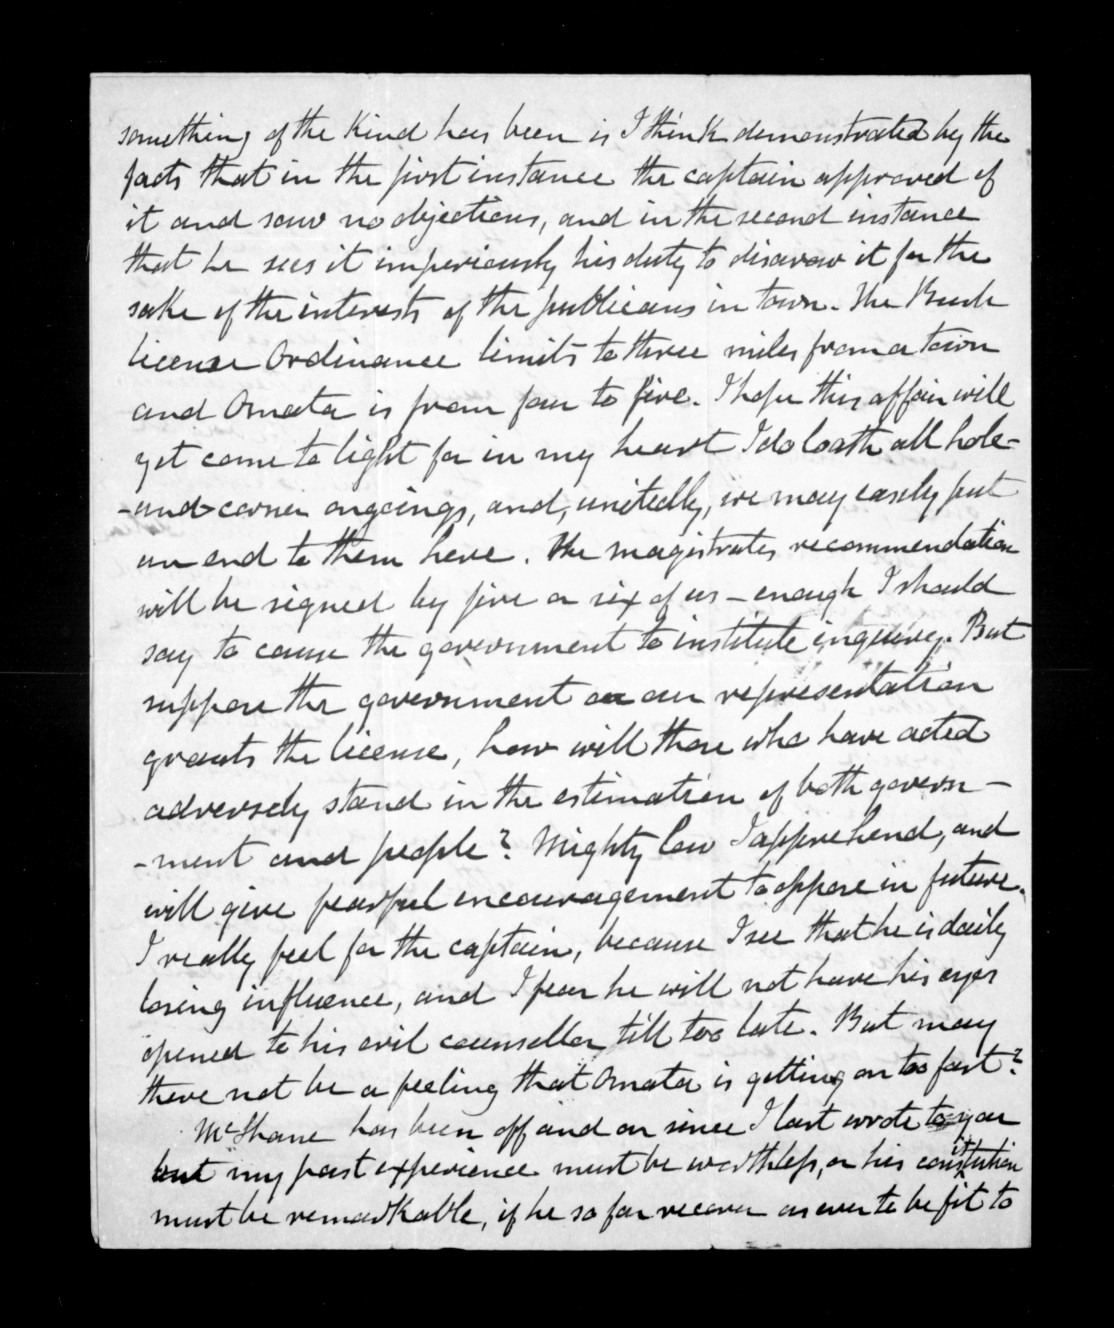 something of the Kind has been is I think demonstrated by the
facts that in the first instance the captain approved of
it and saw no objections, and in the second instance
that he sees it imperiously his duty to disavow it for the
sake of the interests of the publicans in town. The Bush
license Ordinance limits to three miles from a town
and Omata is from four to five. I hope this affair will
yet come to light for in my heart I do loath all hole-
-and-corner ongoings, and, unitedly, we may easily put
an end to them here. The magistrates recommendation
will be signed by five or six of us - enough I should
say to cause the government to institute inquiry. But
suppose the government on our representation
grants the license, how will those who have acted
adversely stand in the estimation of both govern-
-ment and people? Mighty low I apprehend, and
will give fearful encouragement to oppose in future.
I really feel for the captain, because I see that he is daily
losing influence, and I fear he will not have his eyes
opened to his evil counsellor till too late. But may
there not be a feeling that Omata is getting on too fast?
McShane has been off and on since I last wrote to you
but my past experience must be worthless, or his constitution
must be remarkable, if he so far recover as ever to be fit to